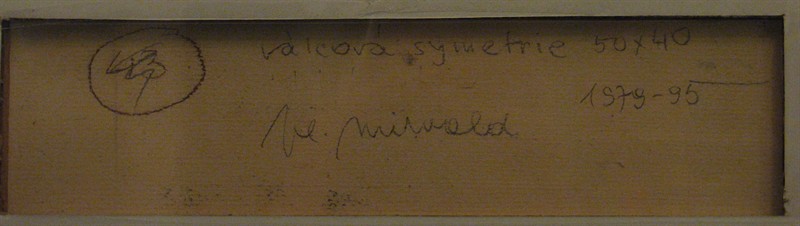 válcová symetrie 50x40
1979-95
vl. mirvald